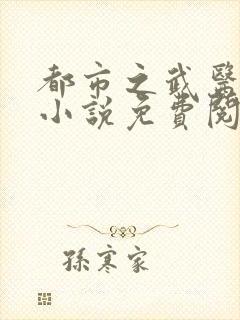 都市之武醫
小説免費閱
孫寒家